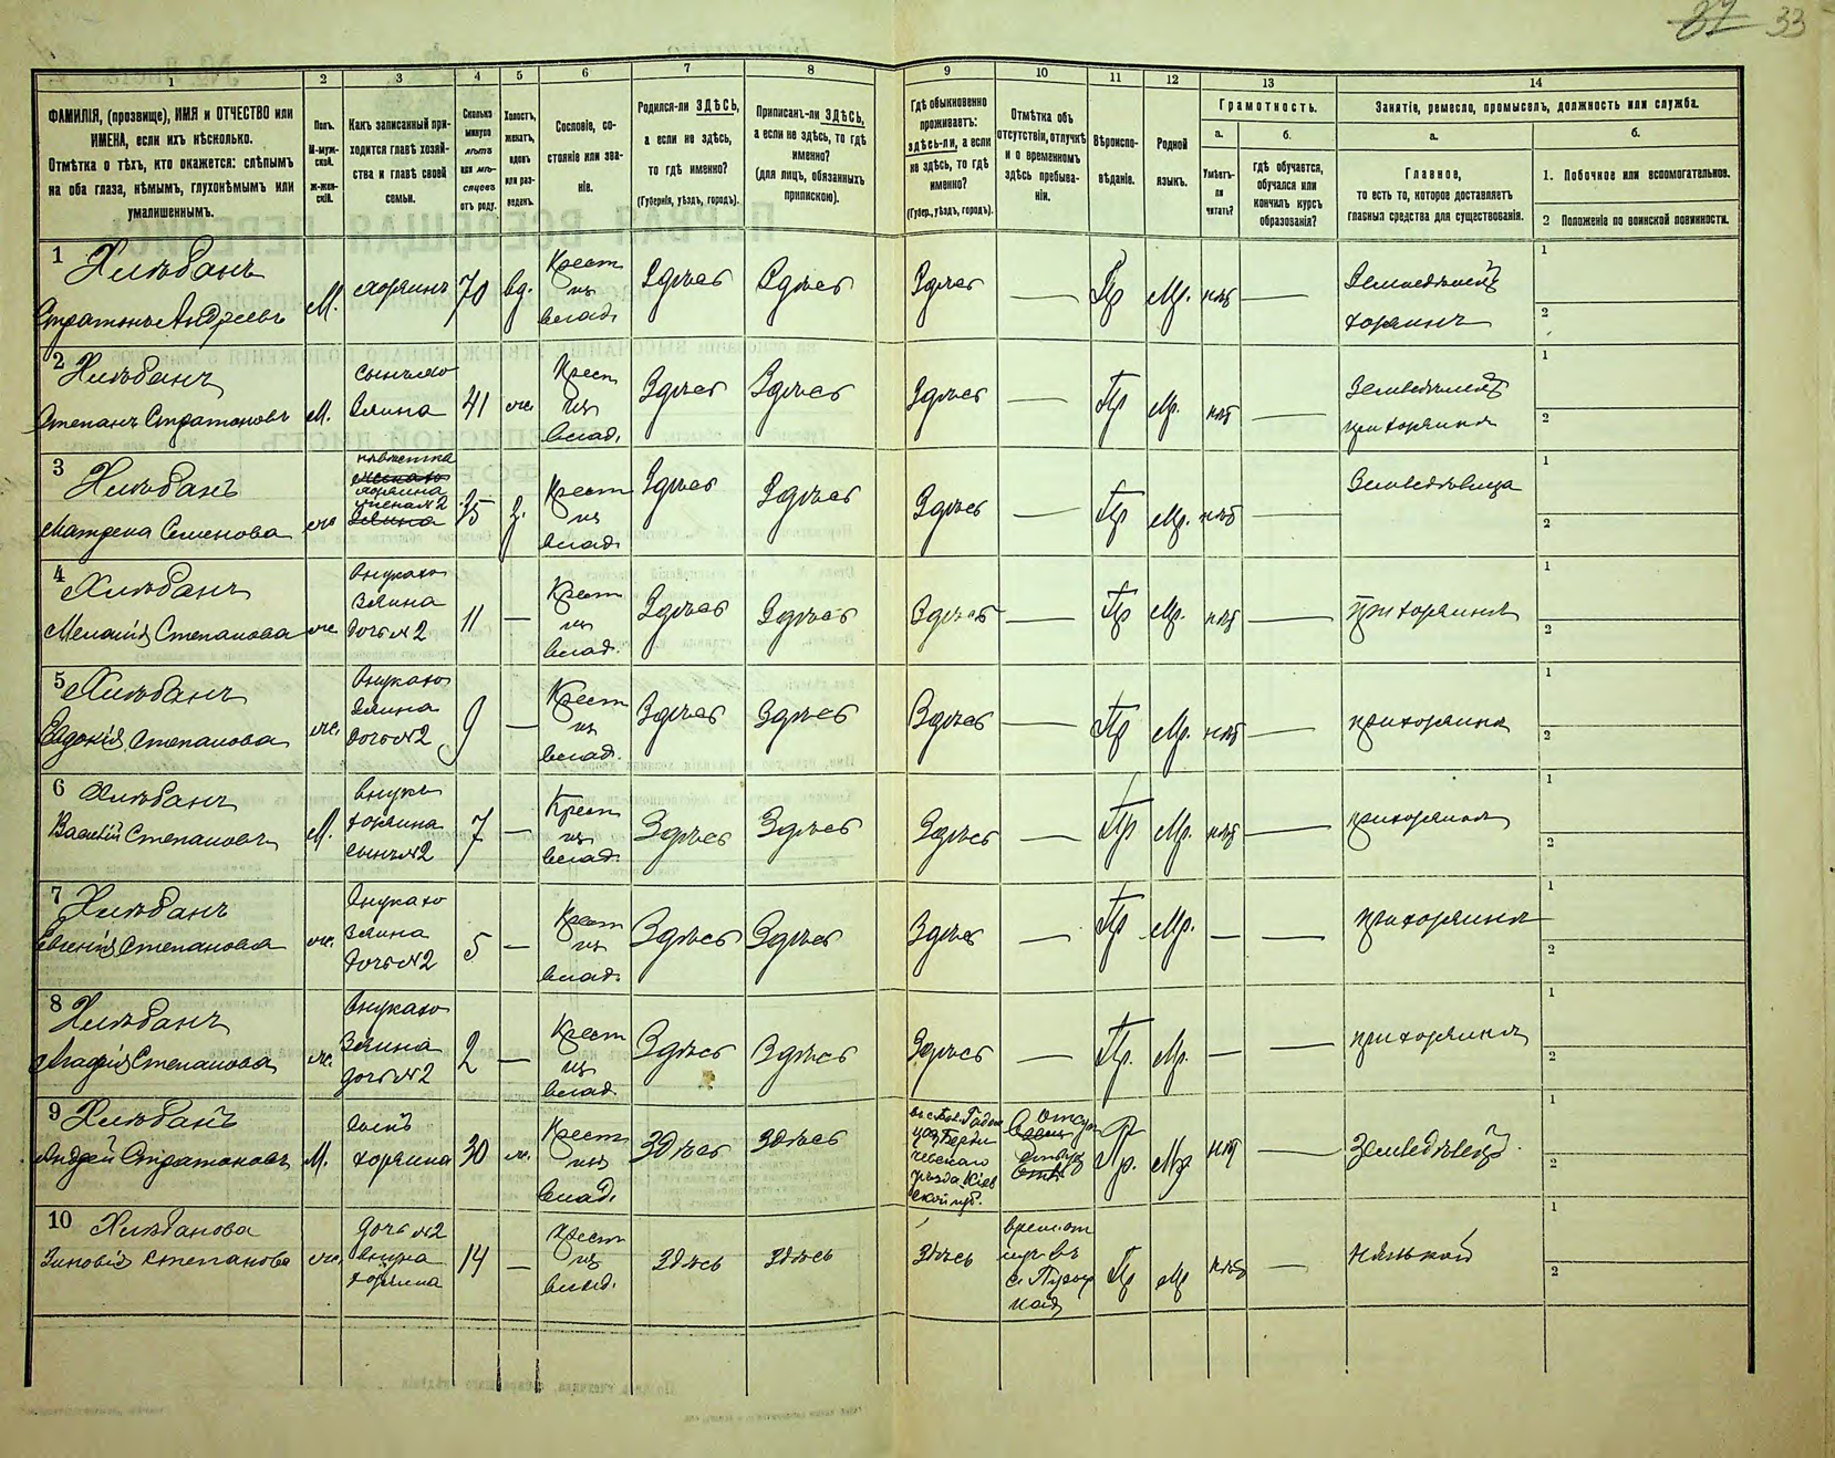 33
1
2
3
4
5
6
7
8
9
10
11
12
13
14
ФАМИЛІЯ, (прозвище), ИМЯ и ОТЧЕСТВО или
ИМЕНА, если ихъ нѣсколько.
Отмѣтка о тѣхъ, кто окажется: слѣпымъ
на оба глаза, нѣмымъ, глухонѣмымъ или
умалишеннымъ.
Полъ.
М-муж-
ской.
Ж-жен-
скій.
Какъ записанный при-
ходится главѣ хозяй-
ства и главѣ своей
семьи.
Сколько
минуло
лѣтъ
или мѣ-
сяцевъ
отъ роду.
Холостъ,
женатъ,
вдовъ
или раз-
веденъ.
Сословіе, со-
стояніе или зва-
ніе.
Родился-ли ЗДѢСЬ,
а если не здѣсь,
то гдѣ именно?
(Губернія, уѣздъ, городъ).
Приписанъ-ли ЗДѢСЬ,
а если не здѣсь, то гдѣ
именно?
(для лицъ, обязанныхъ
припискою).
Гдѣ обыкновенно
проживаетъ:
здѣсь-ли, а если
не здѣсь, то гдѣ
именно?
(Губер., уѣздъ, городъ).
Отмѣтка объ
отсутствіи, отлучкѣ
и о временномъ
здѣсь пребыва-
ніи.
Вѣроиспо-
вѣданіе.
Родной
языкъ.
Грамотность.
а.
Умѣетъ-
ли
читать?
б.
Гдѣ обучается,
обучался или
кончилъ курсъ
образованія?
Занятіе, ремесло, промыселъ, должность или служба.
а.
Главное,
то есть то, которое доставляетъ
главныя средства для существованія.
б.
1. Побочное или вспомогательное.
2 Положеніе по воинской повинности.
1 Хилѣбанъ
Стратонъ Андреевъ
М.
хозяинъ
70
вд.
Крест
из
влад.
Здѣсь
Здѣсь
Здѣсь
—
Пр
Мр.
нѣт
—
Земледѣлецъ
хозяинъ
1
2
2 Хилѣбанъ
Степанъ Стратоновъ
М.
сынъ хо
зяина
41
ж.
Крест
из
влад.
Здѣсь
Здѣсь
Здѣсь
—
Пр
Мр.
нѣт
—
Земледѣлецъ
при хозяинѣ
1
2
3 Хилѣбанъ
Матрена Семенова
ж
невѣстка
хозяина
жена №2
35
з.
Крест
из
влад.
Здѣсь
Здѣсь
Здѣсь
—
Пр
Мр.
нѣт
—
Земледѣлица
1
2
4 Хилѣбанъ
Меланія Степанова
ж
внука хо
зяина
дочь №2
11
—
Крест
из
влад.
Здѣсь
Здѣсь
Здѣсь
—
Пр
Мр.
нѣт
—
при хозяинѣ
1
2
5 Хилѣбанъ
Евдокія Степанова
ж.
внука хо
зяина
дочь №2
9
—
Крест
из
влад.
Здѣсь
Здѣсь
Здѣсь
—
Пр
Мр.
нѣт
—
при хозяинѣ
1
2
6 Хилѣбанъ
Василій Степановъ
М.
внукъ
хозяина
сынъ №2
7
—
Крест
из
влад.
Здѣсь
Здѣсь
Здѣсь
—
Пр
Мр.
нѣт
—
при хозяинѣ
1
2
7 Хилѣбанъ
Евгенія Степанова
ж.
внука хо
зяина
дочь №2
5
—
Крест
из
влад.
Здѣсь
Здѣсь
Здѣсь
—
Пр
Мр.
—
—
при хозяинѣ
1
2
8 Хилѣбанъ
Агафія Степанова
ж.
внука хо
зяина
дочь №2
2
—
Крест
из
влад.
Здѣсь
Здѣсь
Здѣсь
—
Пр.
Мр.
—
—
при хозяинѣ
1
2
9 Хилѣбанъ
Андрей Стратоновъ
М.
сынъ
хозяина
30
ж.
Крест
из
влад.
Здѣсь
Здѣсь
Берди
чевскаго
уѣзда Кіев
ской губ.
Пр.
Мр
нѣт
—
Земледѣлецъ
1
2
10 Хилѣбанова
Зиновія Степанова
ж.
дочь №2
внука
хозяина
14
—
Крест
из
влад.
Здѣсь
Здѣсь
Здѣсь
времен от
Пр
Мр
нѣт
—
нянькой
1
2